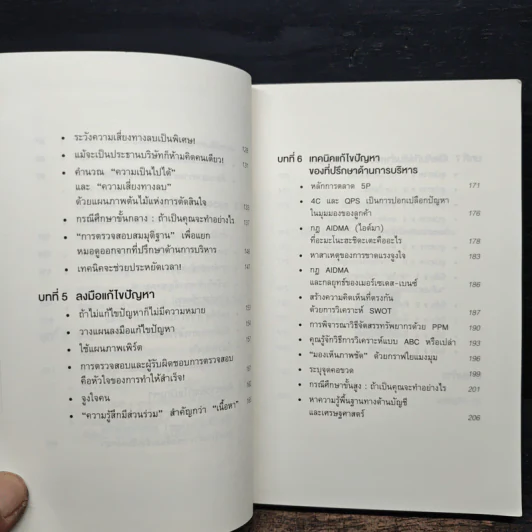 • ระวังความเสี่ยงทางลบเป็นพิเศษ!
• แม้จะเป็นประธานบริษัทก็ห้ามคิดคนเดียว!
• คำนวณ “ความเป็นไปได้”
และ “ความเสี่ยงทางลบ”
ด้วยแผนภาพต้นไม้แห่งการตัดสินใจ
• กรณีศึกษาขั้นกลาง : ถ้าเป็นคุณจะทำอย่างไร
• “การตรวจสอบสมมุติฐาน” เพื่อแยก
หมอดูออกจากที่ปรึกษาด้านการบริหาร
• เทคนิคจะช่วยประหยัดเวลา!
บทที่ 5 ลงมือแก้ไขปัญหา
• ถ้าไม่แก้ไขปัญหาก็ไม่มีความหมาย
• วางแผนลงมือแก้ไขปัญหา
• ใช้แผนภาพเพิร์ต
• การตรวจสอบและผู้รับผิดชอบการตรวจสอบ
คือหัวใจของการทำให้สำเร็จ!
• จูงใจคน
• “ความรู้สึกมีส่วนร่วม” สำคัญกว่า “เนื้อหา”
บทที่ 6 เทคนิคแก้ไขปัญหา
ของที่ปรึกษาด้านการบริหาร
• หลักการตลาด 5P 171
• 4C และ QPS เป็นการปอกเปลือกปัญหา
ในมุมมองของลูกค้า 176
• กฎ AIDMA (ไอด์มา)
ที่อะมะโนะสะชิดะเตะคืออะไร 178
• หาสาเหตุของการขาดแรงจูงใจ 183
• กฎ AIDMA
และกลยุทธ์ของเมอร์เซเดส-เบนซ์ 186
• สร้างความคิดเห็นที่ตรงกัน
ด้วยการวิเคราะห์ SWOT 187
• การพิจารณาวิธีจัดสรรทรัพยากรด้วย PPM 190
• คุณรู้จักวิธีการวิเคราะห์แบบ ABC หรือเปล่า 193
• “มองเห็นภาพชัด” ด้วยกราฟใยแมงมุม 196
• ระบุจุดคอขวด 199
• กรณีศึกษาขั้นสูง : ถ้าเป็นคุณจะทำอย่างไร 201
• หาความรู้พื้นฐานทางด้านบัญชี
และเศรษฐศาสตร์ 206